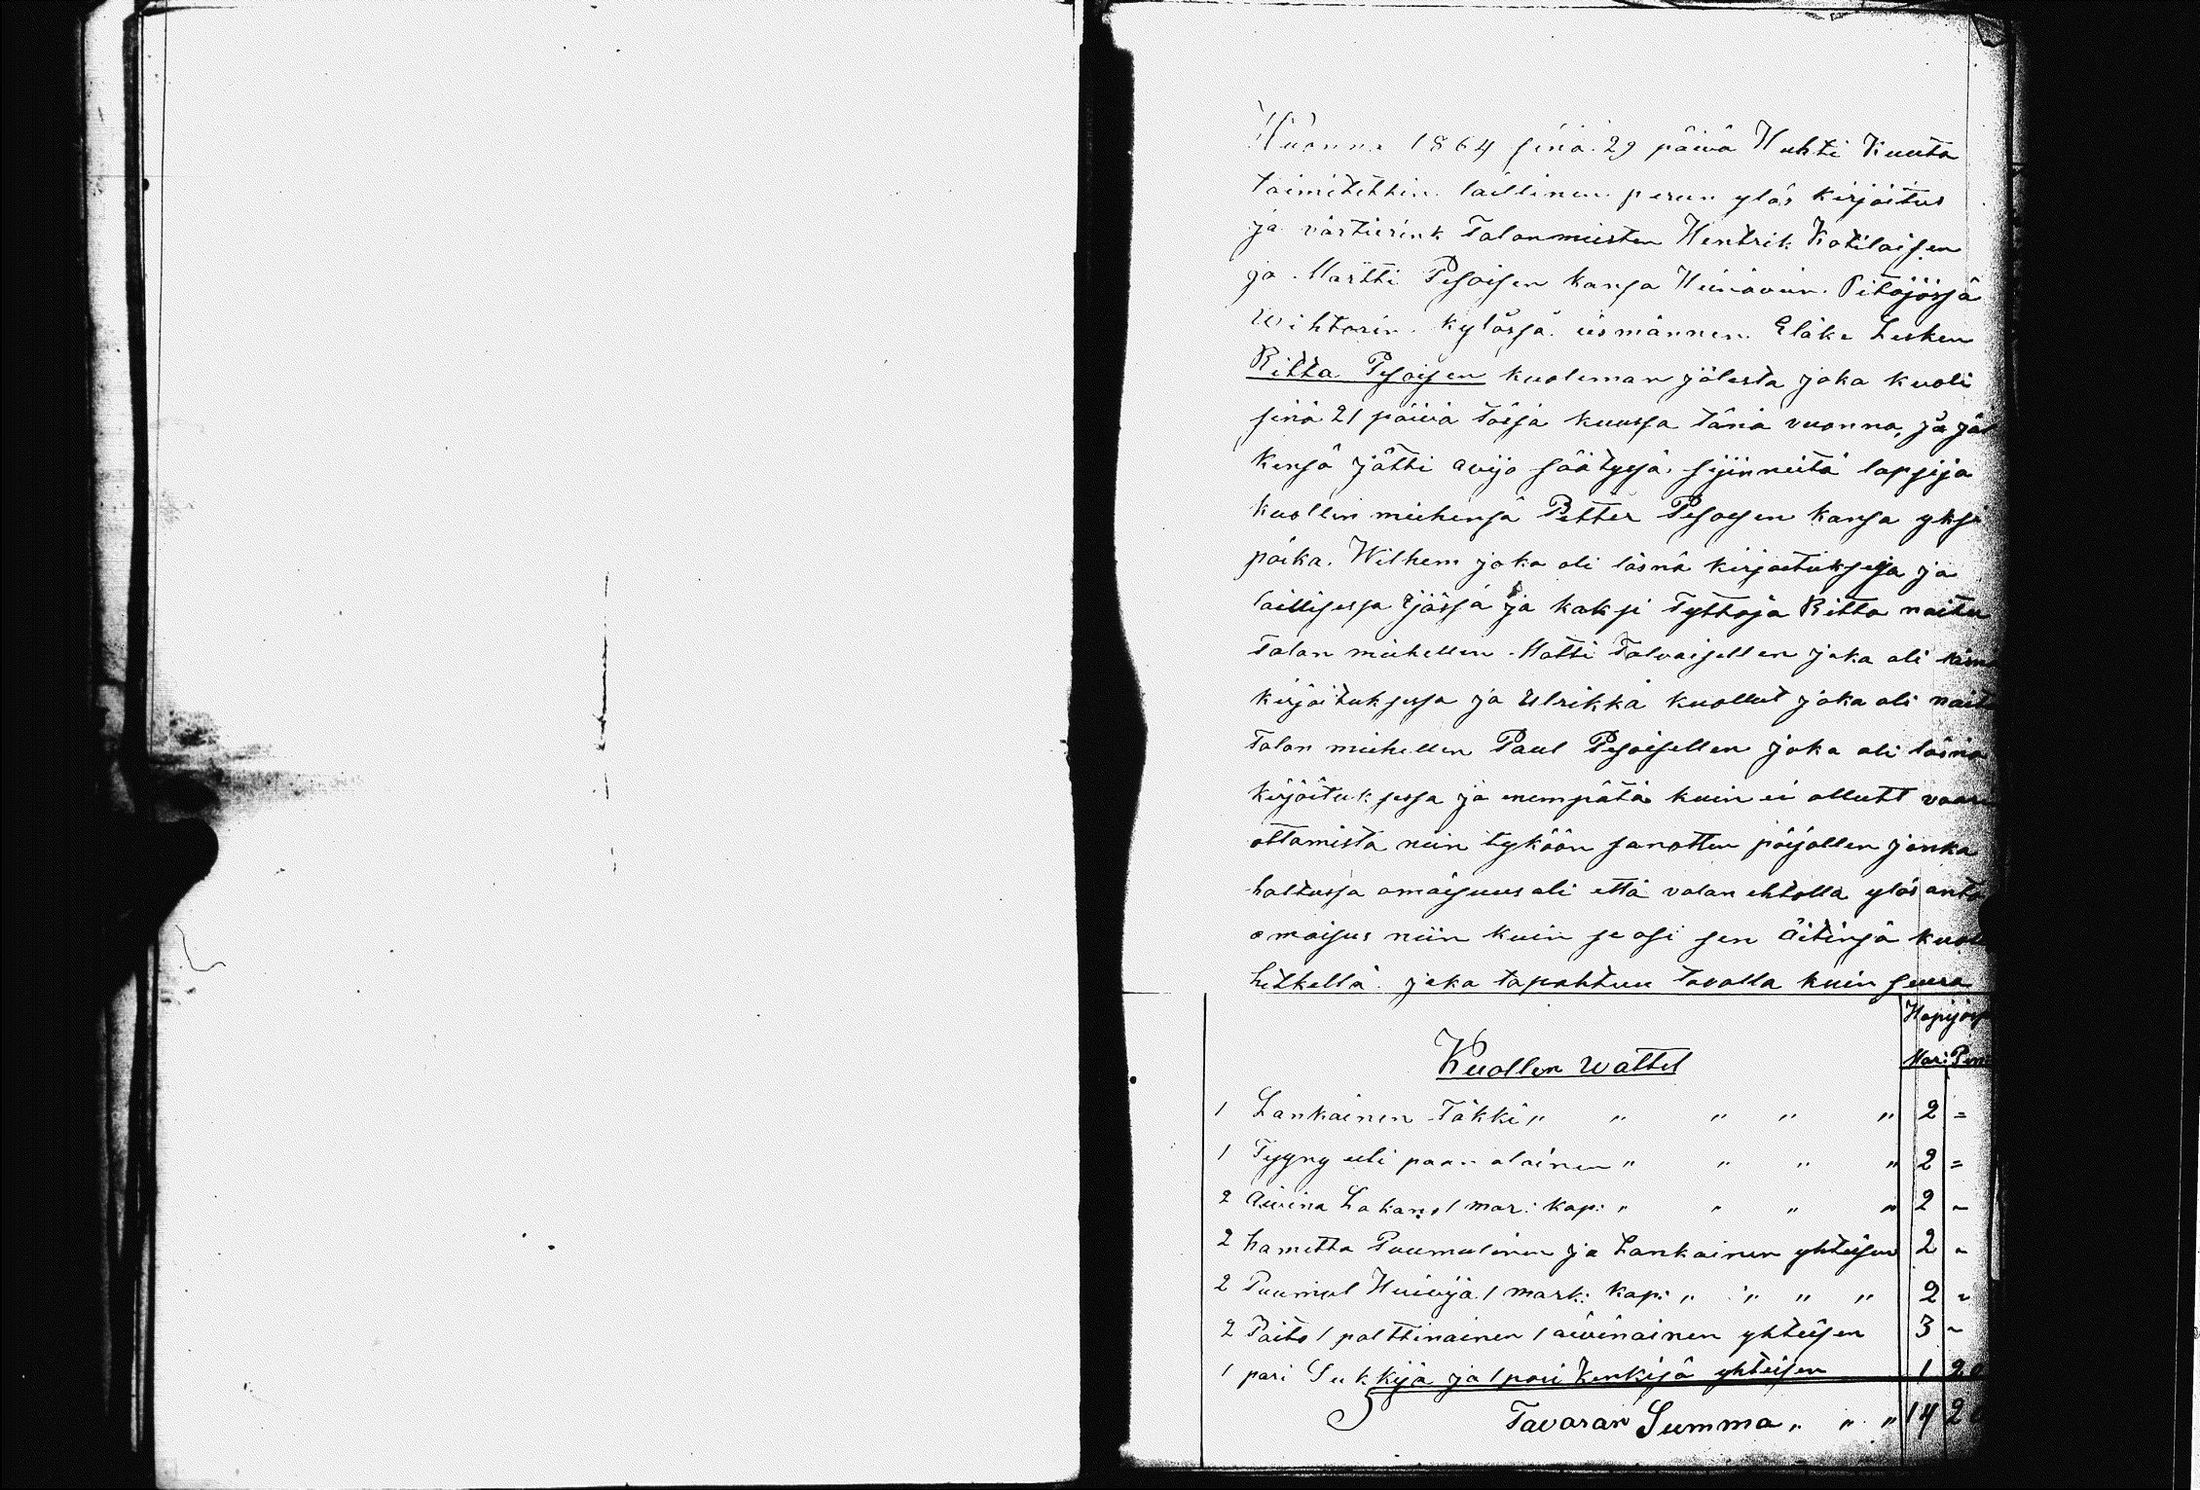 Wuonna 1864 sinä 29 päivä Huhti Kuuta
toimitettin laillinen perun ylös kirjoitus
ja värtierink Talonmiesten Hentrik Kotilaisen
ja Martti Pesoisen kansa Heinävein Pitäjässä
Wihtarin kylässä Eläke Lesken
Ritta Pesoisen kuoleman jälesta joka kuoli
sinä 21 päivä tässä kuussa tänä vuonna, ja jäl
kensä jätti avijo säätysä sijinneitä lapsija
kuollen miehensä Petter Pesosen kansa yksi
poika Wilhem joka oli läsnä kirjoituksessa ja
laillisessa ijässä ja kaksi Tyttöja Ritta naitu
Talon miehellen Matti Talvaisellen joka oli läsnä
kirjoituksessa ja Ulrikka kuollut joka oli naitu
Talon miehellen Paul Pesoisellen joka oli läsnä
kirjoituksessa ja enempätä kuin ei ollutt vaari
ottamista niin tykään sanottin pojallen jonka
haltussa omaisuus oli että valan ehtolla ylös anta
omaisus niin kuin se osi sen äitinsä kuol
hetkellä joka tapahtuu tavalla kuin seura
Hopijossa
Kuollen wattet Mar: Pen
1 Lankainen Täkki " " " " " 2 =
1 Tyyny eli pään alainen " " " " 2 =
2 Aivina Lakana 1 mar: kap: " " " " 2 "
2 hametta Puumulinen ja Lankainen yhteisen 2 "
2 Puumul Huivija 1 mark: kap: " " " " 2 "
2 Paito 1 palttinainen 1 aivinainen yhteisen 3 "
1 pari Sukkija ja 1 pari Kenkijä yhteisen 1 20
Tavaran Summa " " " 14 20